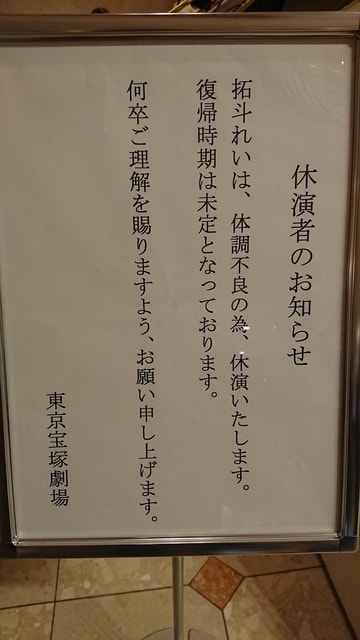 休演者のお知らせ
拓斗れいは、体調不良の為、休演いたします。
復帰時期は未定となっております。
何卒ご理解を賜りますよう、お願い申し上げます。
東京宝塚劇場